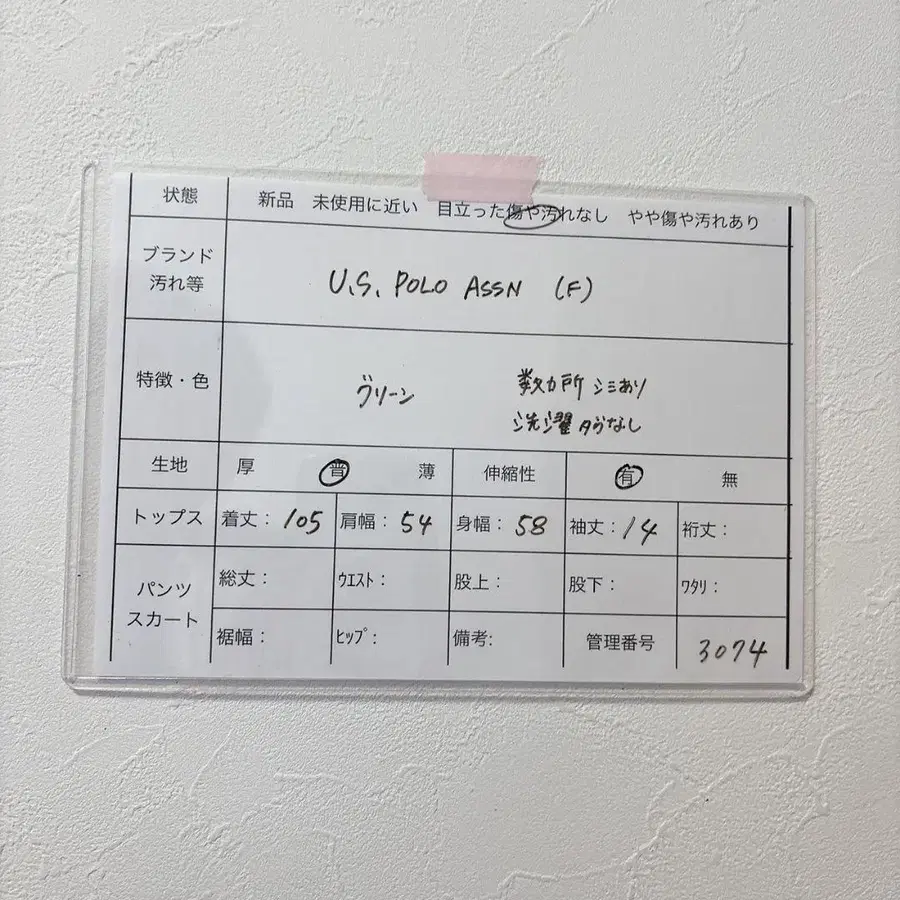 状態 新品 未使用に近い 目立った傷や汚れなし やや傷や汚れあり
ブランド
汚れ等
U.S. POLO ASSN (F)
特徴・色
グリーン
数カ所 シミあり
洗濯タグなし
生地 厚 普 薄 伸縮性 有 無
トップス 着丈: 105 肩幅: 54 身幅: 58 袖丈: 14 裄丈:
パンツ
スカート
総丈: ｳｴｽﾄ: 股上: 股下: ﾜﾀﾘ:
裾幅: ﾋｯﾌﾟ: 備考: 管理番号 3074